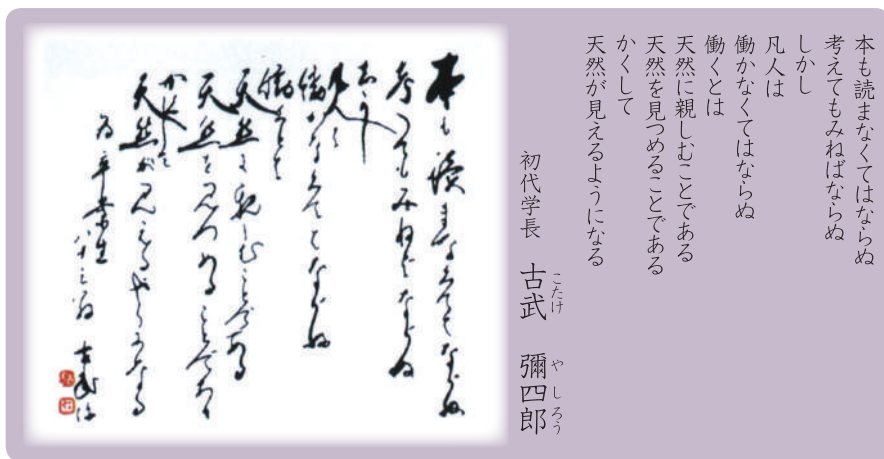 本も読まなくてはならぬ
考えてもみねばならぬ
しかし
凡人は
働かなくてはならぬ
働くとは
天然に親しむことである
天然を見つめることである
かくして
天然が見えるようになる
初代学長 古武 彌四郎
こたけ やしろう
本も讀まなくてはならぬ
考へてもみねばならぬ
しかし
凡人は
働かなくてはならぬ
働くとは
天然に親しむことである
天然を見つめることである
かくして
天然が見えるやうになる
為卒業生